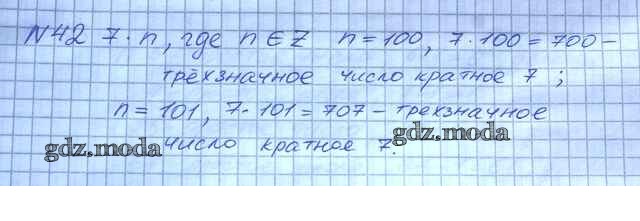 №42 7·n, где n ∈ Z n = 100, 7·100 = 700 –
трёхзначное число кратное 7;
n = 101, 7·101 = 707 – трехзначное
gdz.moda
число кратное 7.
gdz.moda